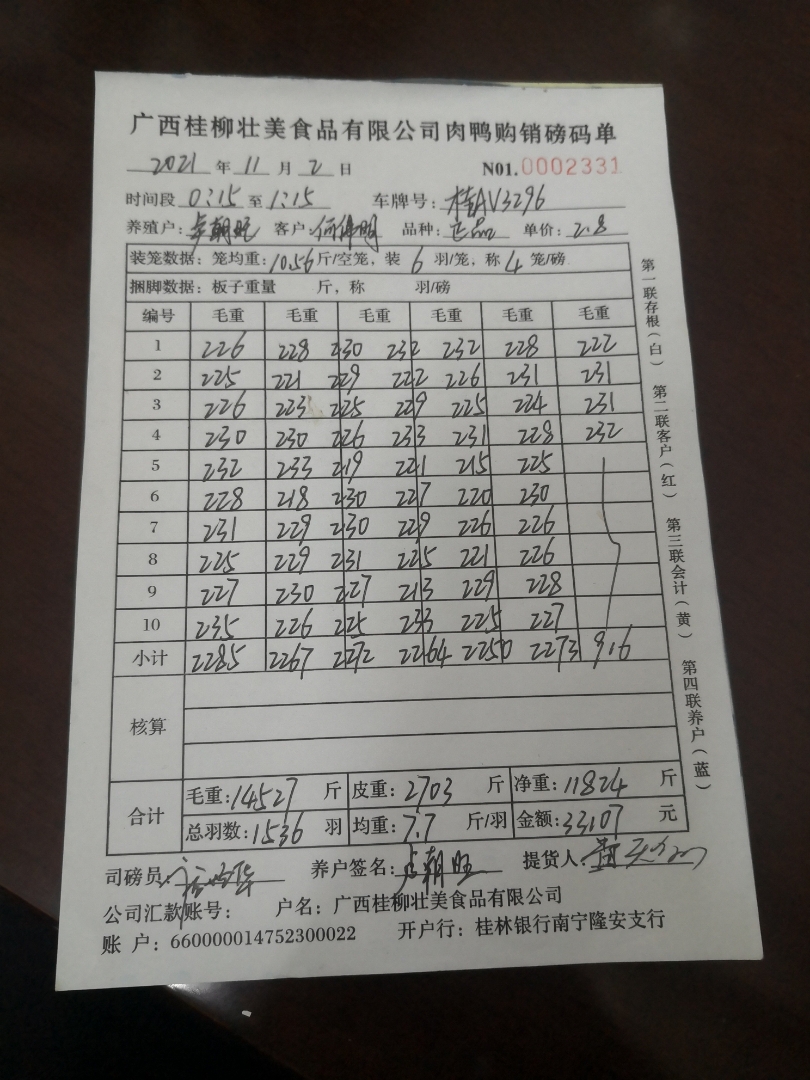 广西桂柳壮美食品有限公司肉鸭购销磅码单
2021 年 11 月 2 日 N01.0002331
时间段 0:15 至 1:15 车牌号: 桂AV3296
养殖户: 卢朝旺 客户: 何 品种: 单价: 2.8
装笼数据: 笼均重: 10.56 斤/空笼, 装 6 羽/笼, 称 4 笼/磅
捆脚数据: 板子重量 斤, 称 羽/磅
编号 毛重 毛重 毛重 毛重 毛重 毛重
1 226 228 230 232 232 228 222
2 225 221 229 222 226 231 231
3 226 223 225 229 225 224 231
4 230 230 226 233 231 228 232
5 232 233 219 221 215 225
6 228 218 230 227 220 230
7 231 229 230 229 226 226
8 225 229 231 225 221 226
9 227 230 227 213 229 228
10 235 226 225 233 225 227
小计 2285 2267 2272 2264 2250 2273 916
核算
合计
毛重: 14527 斤 皮重: 2703 斤 净重: 11824 斤
总羽数: 1536 羽 均重: 7.7 斤/羽 金额: 33107 元
司磅员: 养户签名: 卢朝旺 提货人: 黄
公司汇款账号: 户名: 广西桂柳壮美食品有限公司
账 户: 660000014752300022 开户行: 桂林银行南宁隆安支行
第一联存根(白) 第二联客户(红) 第三联会计(黄) 第四联养户(蓝)